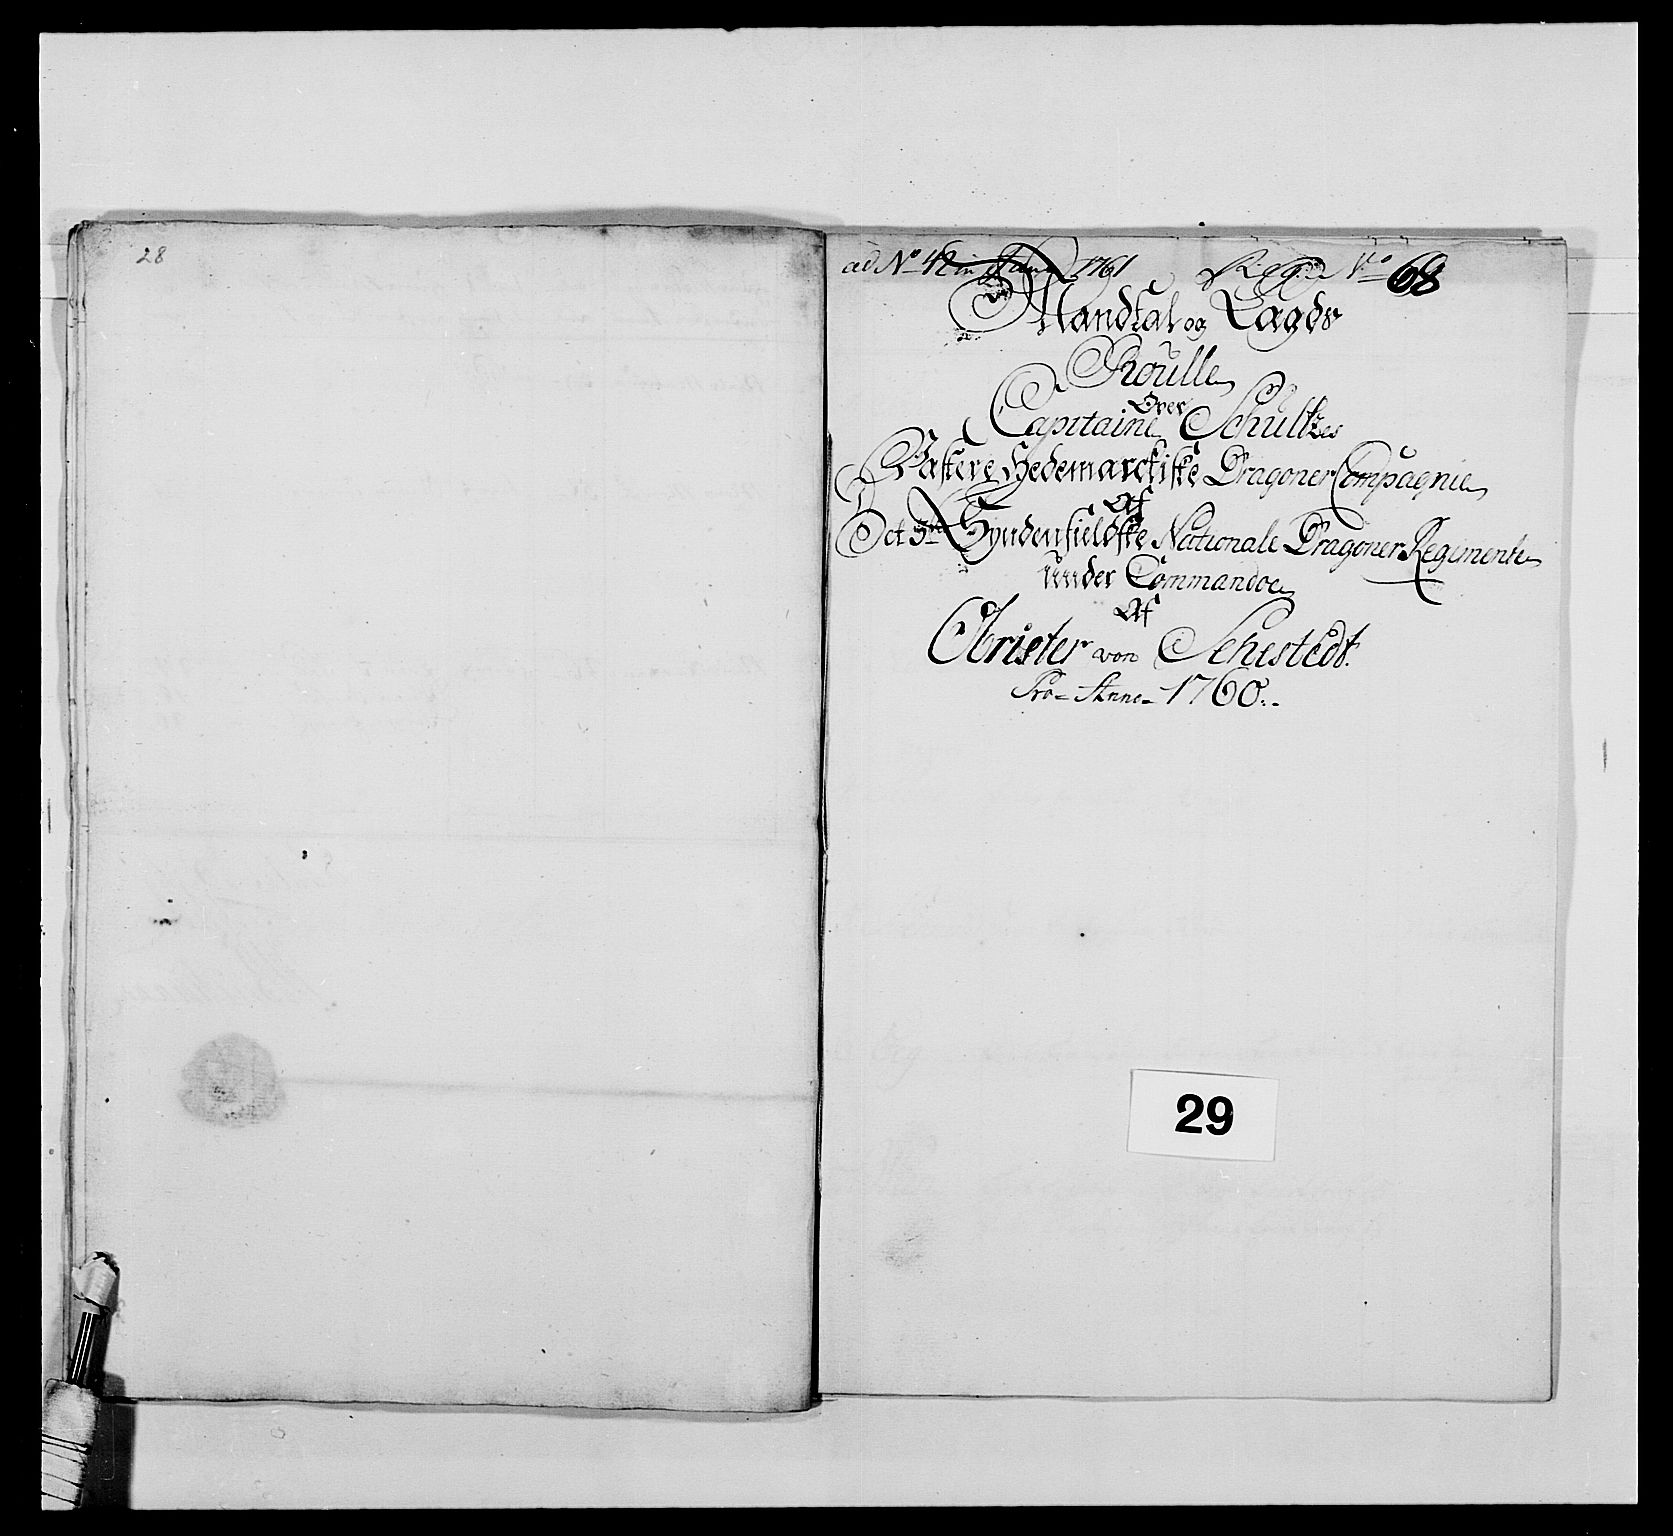 28
ad No 42 in Janu 1761
No 68
Mandtal og Lægds
Roulle
Over
Capitaine Schultzes
Vastere Hedemarckiske Dragoner Compagnie
Af
Det 3te Syndenfieldske Nationale Dragoner Regimente
under Commandoe
Af
Obrister von Sehestedt.
Pro Anno 1760.
29